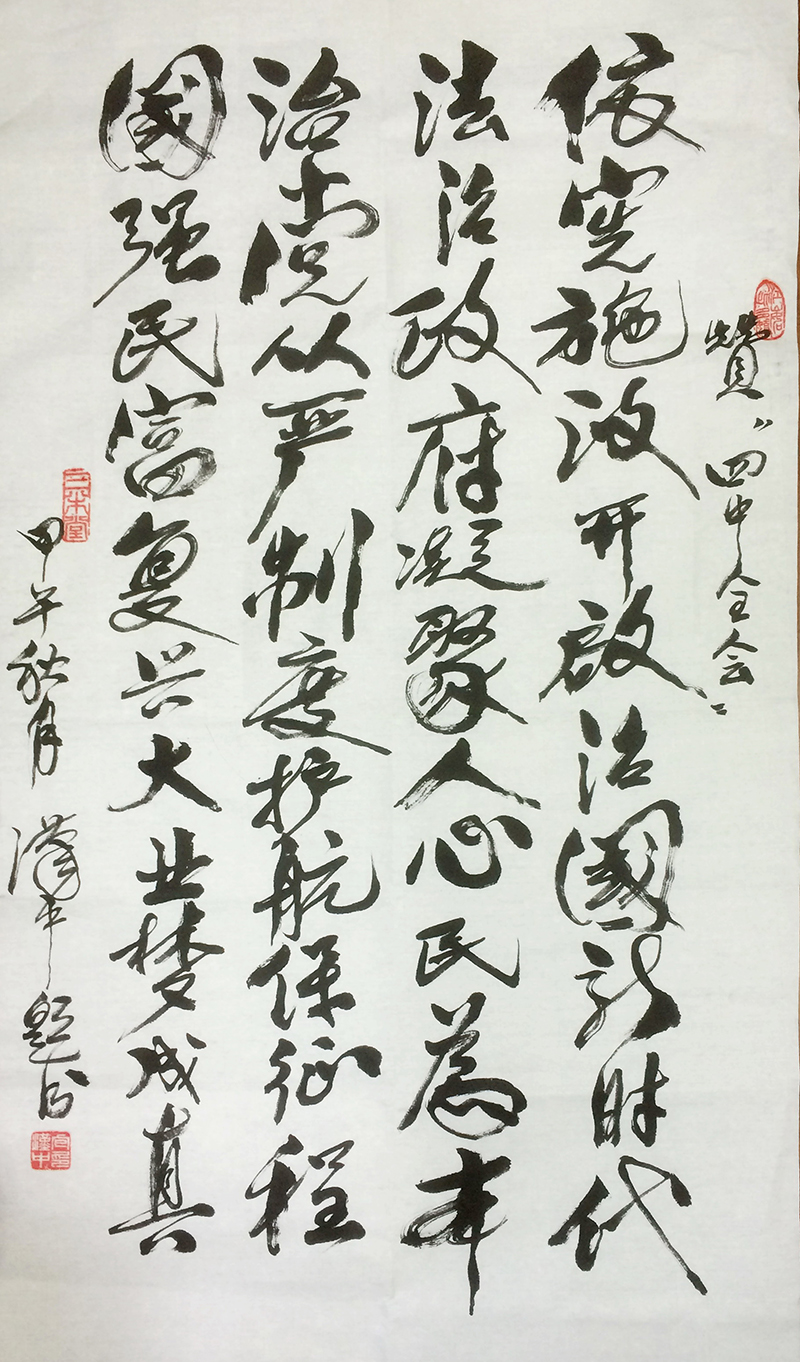 赞“四中全会”
依宪施政开启治國新时代
法治政府凝聚人心民為本
治党从严制度护航保征程
國强民富复兴大业梦成真
甲午秋月 漢中题书
三乐堂